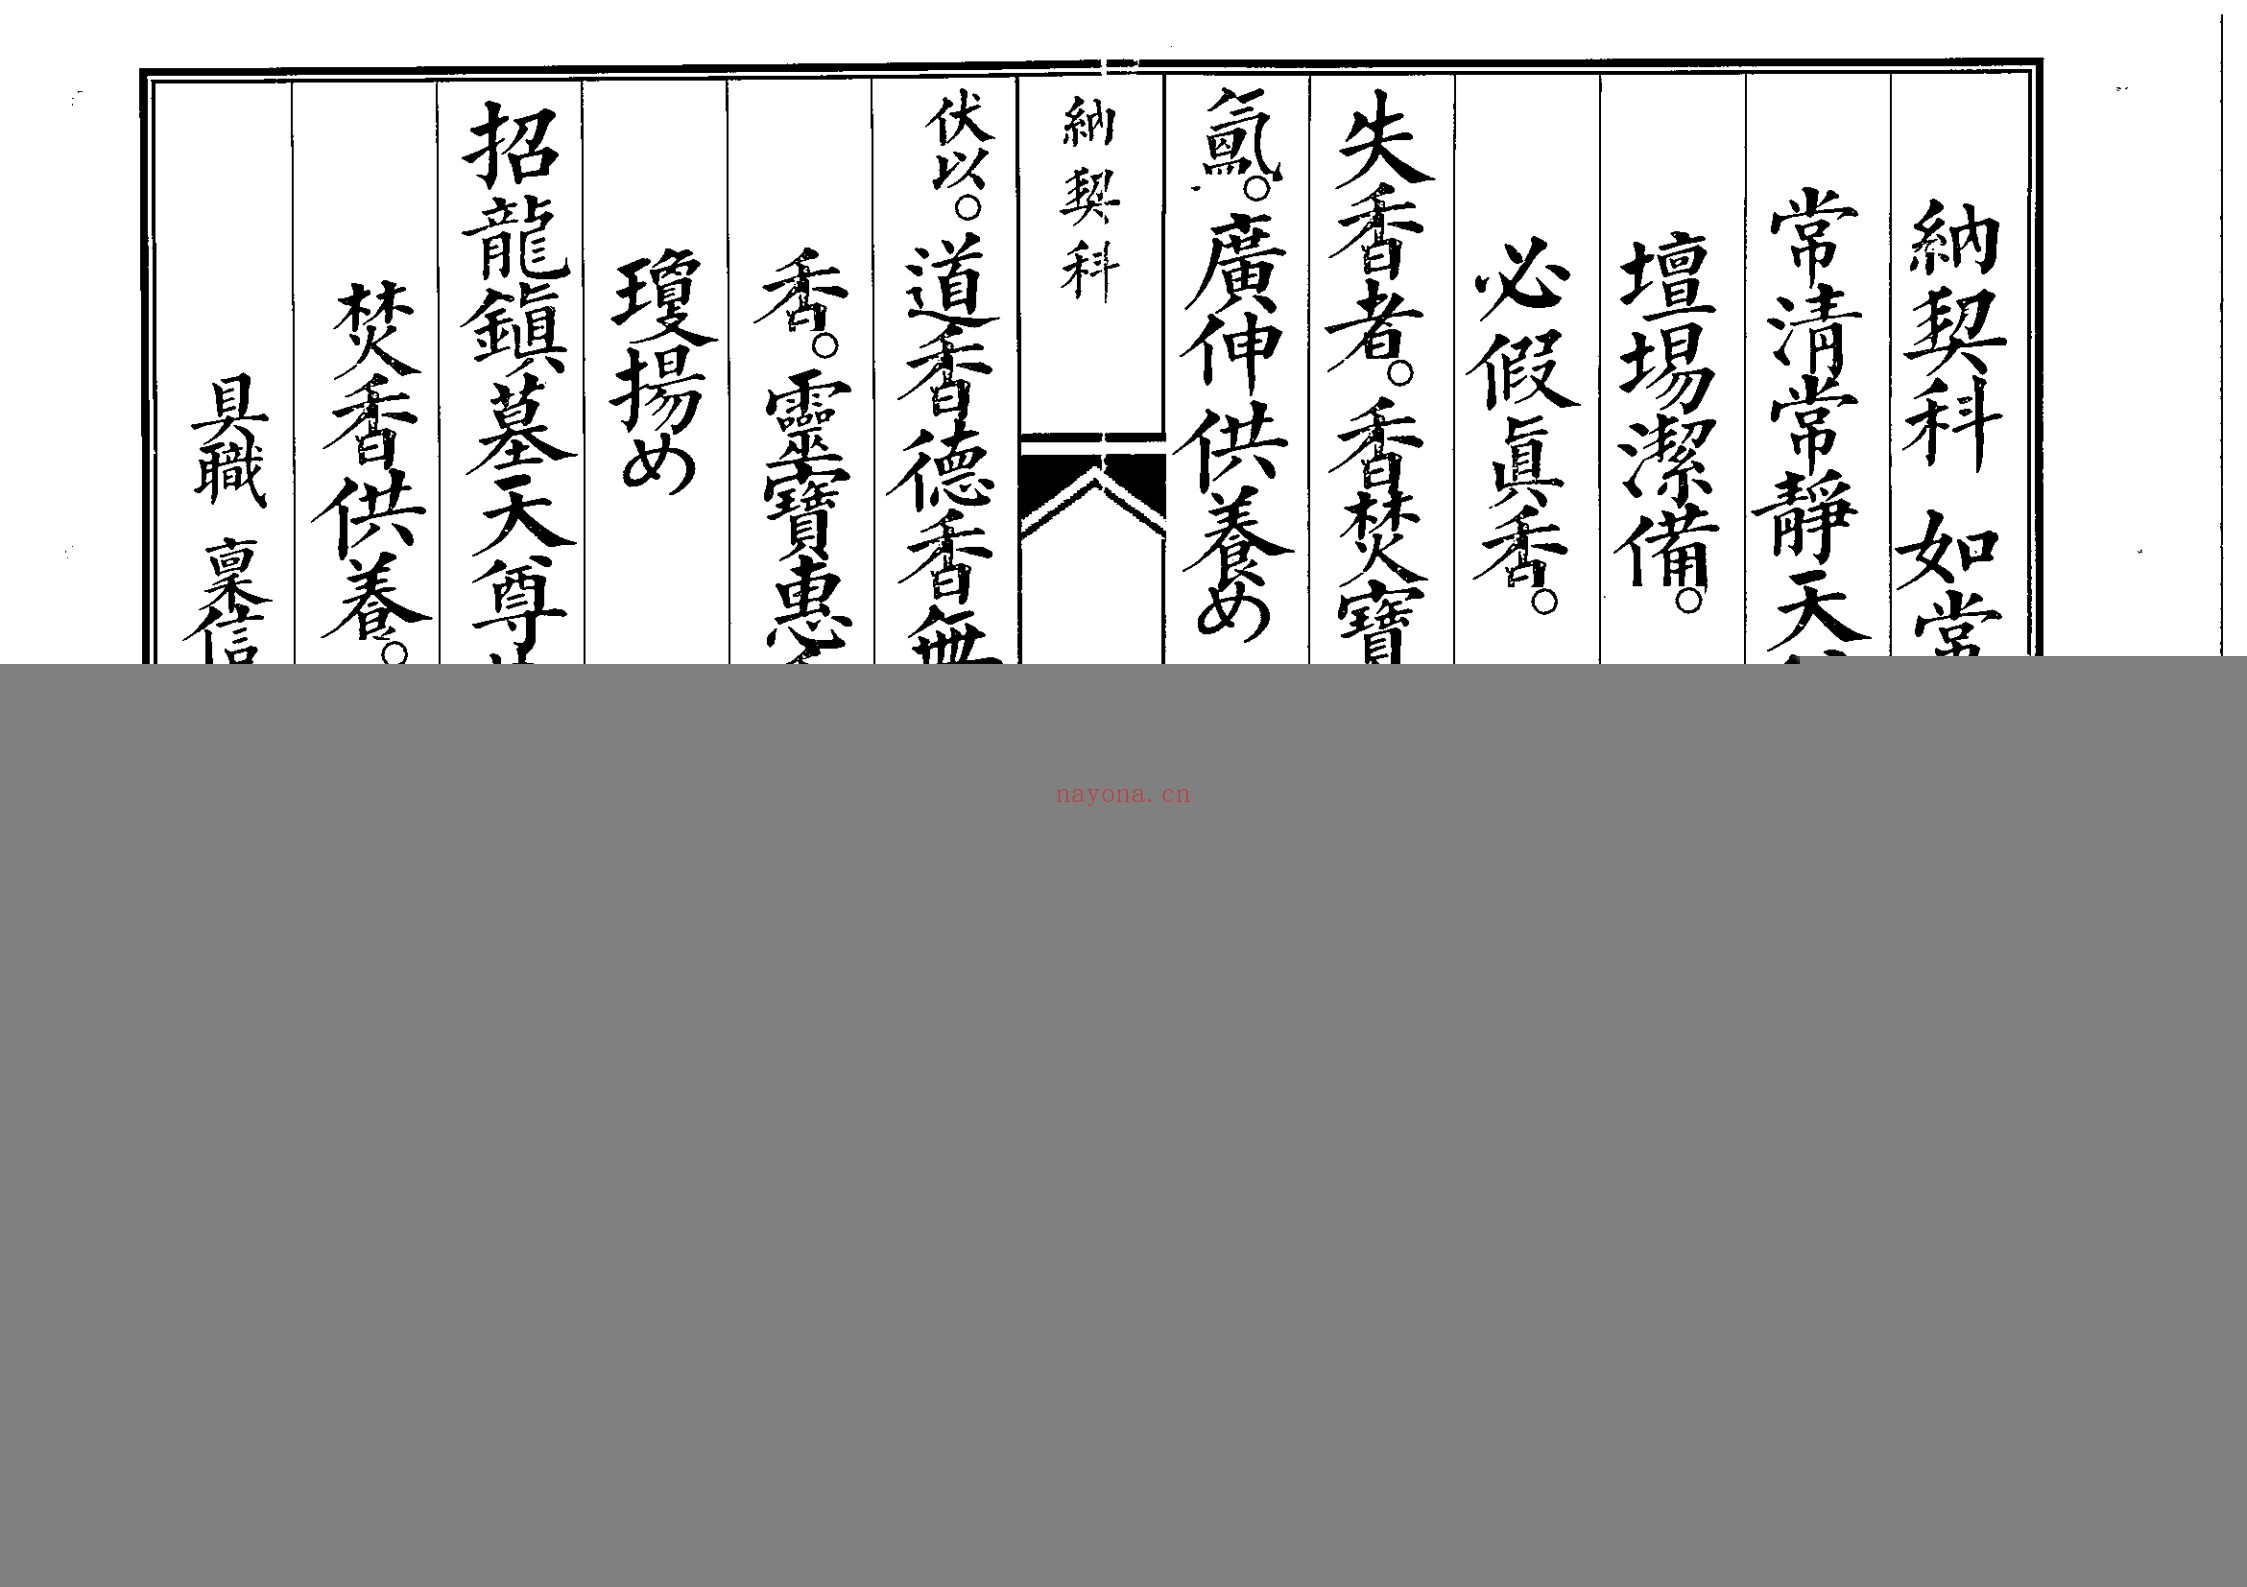 納契科 如常
常清常靜天
壇場潔備。
必假眞香。
失香者。香焚寶
氳。廣伸供養め
納契科
伏以。道香德香無
香。靈寶惠香
瓊揚め
招龍鎭墓天尊
焚香供養。
具職 稟信
nayona.cn